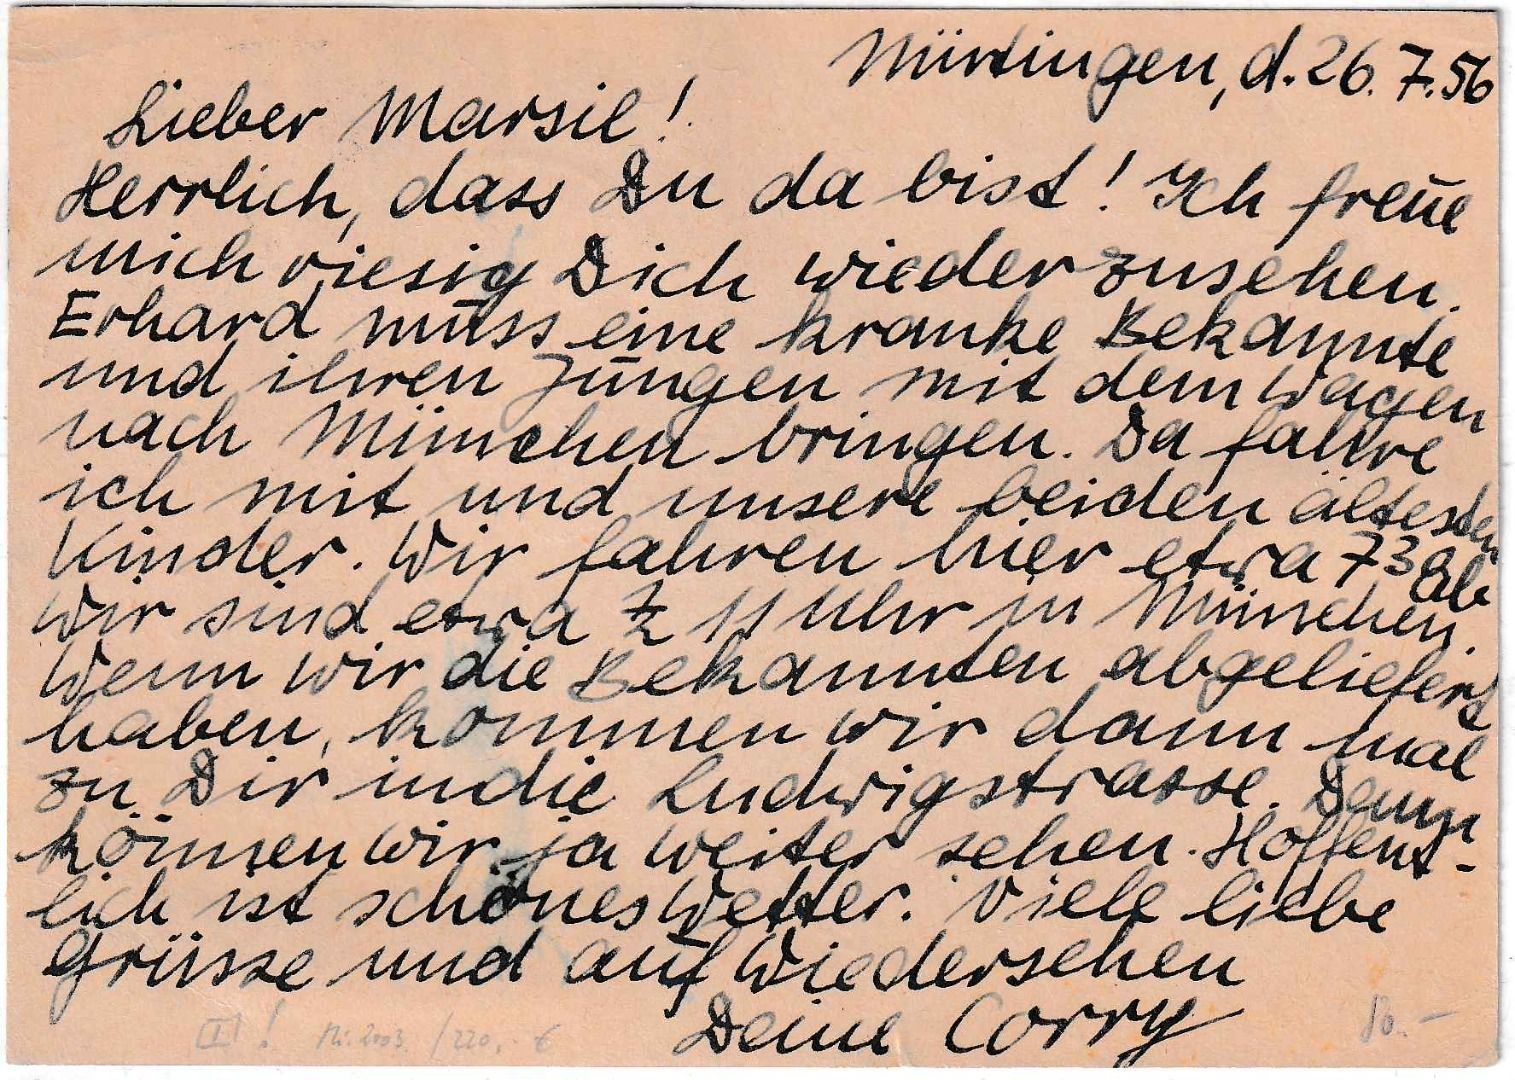 Nürtingen, d. 26. 7. 56
Lieber Marsil!
Herrlich, dass Du da bist! Ich freue
mich riesig Dich wiederzusehen.
Erhard muss eine kranke Bekannte
und ihren Jungen mit dem Wagen
nach München bringen. Da fahre
ich mit und unsere beiden ältesten
Kinder. Wir fahren hier etwa 7 30 ab
Wir sind etwa 11 Uhr in München.
Wenn wir die Bekannten abgeliefert
haben, kommen wir dann mal
zu Dir in die Ludwigstrasse. Dann
können wir ja weiter sehen. Hoffent-
lich ist schönes Wetter. Viele liebe
Grüsse und auf Wiedersehen
Deine Corry
! Mi. 2003 /220,- €